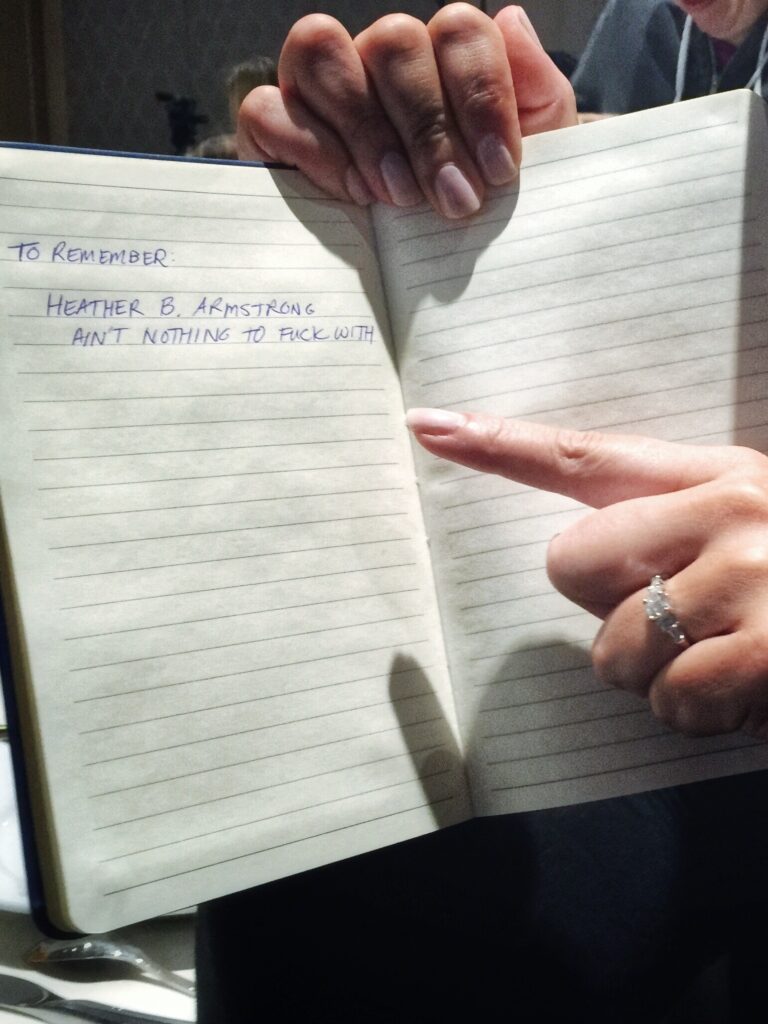 TO REMEMBER:
HEATHER B. ARMSTRONG
AIN'T NOTHING TO FUCK WITH